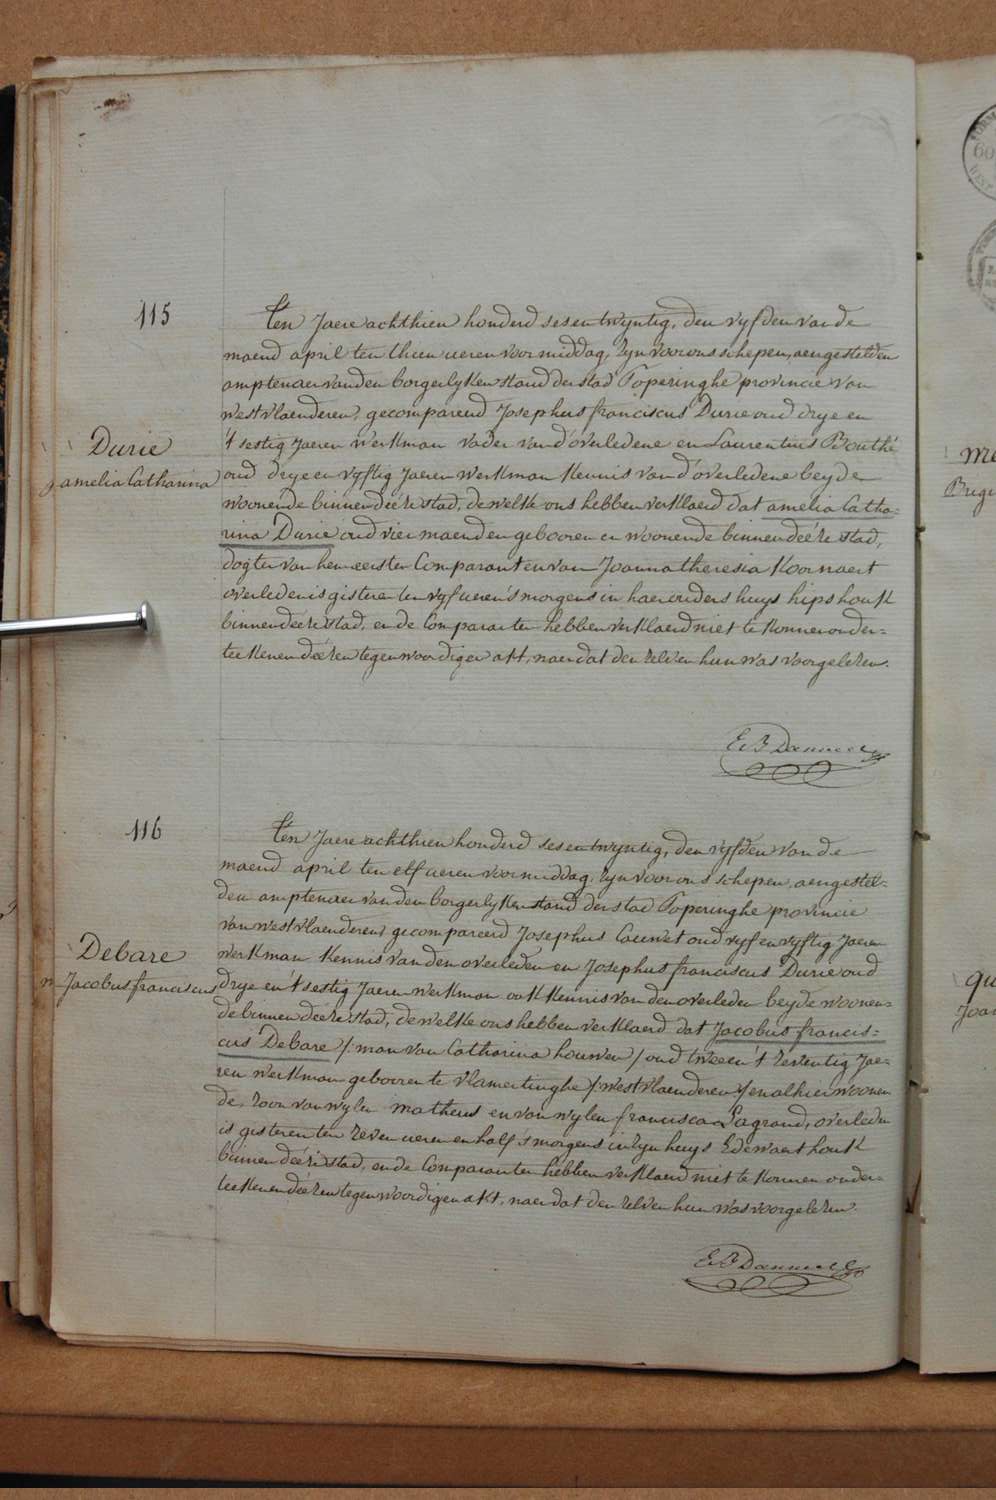 115
Durie
amelia Catharina
ten Jaere achthien honderd sesentwyntig, den vyfden van de
maend april ten thien ueren voormiddag, zyn voor ons schepen, aengestelden
amptenaer van den borgerlyken stand der stad Poperinghe provincie van
westvlaenderen, gecompareerd Josephus franciscus Durie oud drye en
't sestig Jaeren werkman vader van d'overledene en Laurentius Bouthé
oud drye en vyftig Jaeren werkman kennis van d'overledene beyde
woonende binnen deéze stad, dewelke ons hebben verklaerd dat amelia Catha-
rina Durie oud vier maenden gebooren en woonende binnen deéze stad,
dogter van hem eersten Comparant en van Joanna theresia Koornaert
overleden is gisteren ten vyf ueren 's morgens in haer ouders huys hipshouk
binnen deéze stad, en de Comparanten hebben verklaerd niet te konnen onder-
teekenen deézen tegenwoordigen akt, naer dat den zelven hun was voorgelezen.
116
Debare
Jacobus franciscus
ten Jaere achthien honderd sesentwyntig, den vyfden van de
maend april ten elf ueren voormiddag, zyn voor ons schepen, aengestel-
den amptenaer van den borgerlyken stand der stad Poperinghe provincie
van westvlaenderen, gecompareerd Josephus Cauwet oud vyf en vyftig Jaeren
werkman kennis van den overleden en Josephus franciscus Durie oud
drye en 't sestig Jaeren werkman ook kennis van den overleden beyde woonen-
de binnen deéze stad, dewelke ons hebben verklaerd dat Jacobus francis-
cus Debare /: man van Catharina houwen / oud twee en 't zeventig Jae-
ren werkman gebooren te vlamertinghe /: westvlaenderen :/ en alhier woonen
de, zoon van wylen matheus en van wylen francisca Lagrand, overleden
is gisteren ten zeven ueren en half 's morgens in zyn huys Edewaert houk
binnen deéze stad, en de Comparanten hebben verklaerd niet te konnen onder-
teekenen deézen tegenwoordigen akt, naer dat den zelven hun was voorgelezen.